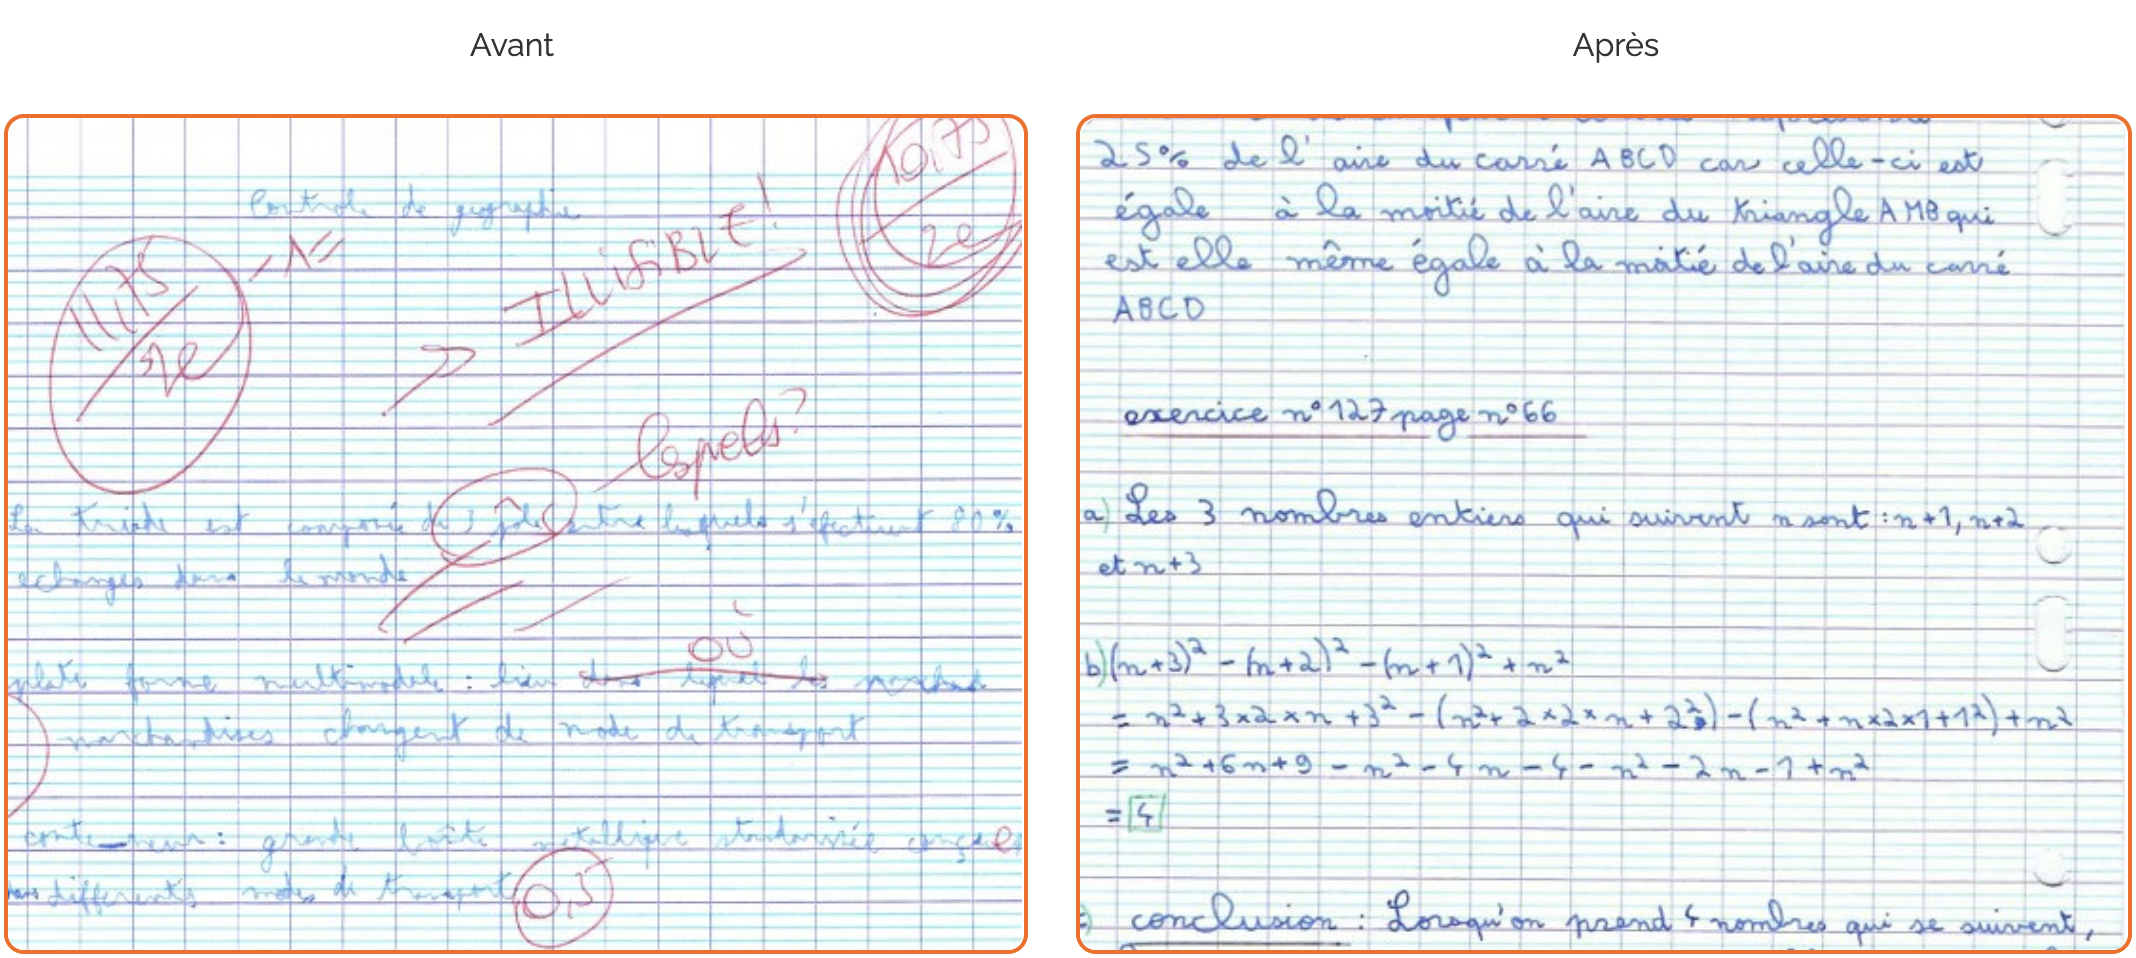 Avant
Après
Controle de geographie
10,75
20
11,75
20
-1=
ILLISIBLE!
lesquels?
La triade est composée de 3 pôles entre lesquels s'effectuent 80%
echanges dans le monde
où
plate forme multimodale : lieu dans lequel les marchand
marchandises changent de mode de transport
conteneur : grande boîte metallique standarisée conçue
differents modes de transport
0,5
25% de l'aire du carré ABCD car celle-ci est
égale à la moitié de l'aire du triangle AMB qui
est elle même égale à la moitié de l'aire du carré
ABCD
exercice n°127 page n°66
a) Les 3 nombres entiers qui suivent n sont : n+1, n+2
et n+3
b) (n+3)² - (n+2)² - (n+1)² + n²
= n² + 3×2×n + 3² - (n² + 2×2×n + 2²) - (n² + n×2×1 + 1²) + n²
= n² + 6n + 9 - n² - 4n - 4 - n² - 2n - 1 + n²
= 4
conclusion : Lorsqu'on prend 4 nombres qui se suivent,